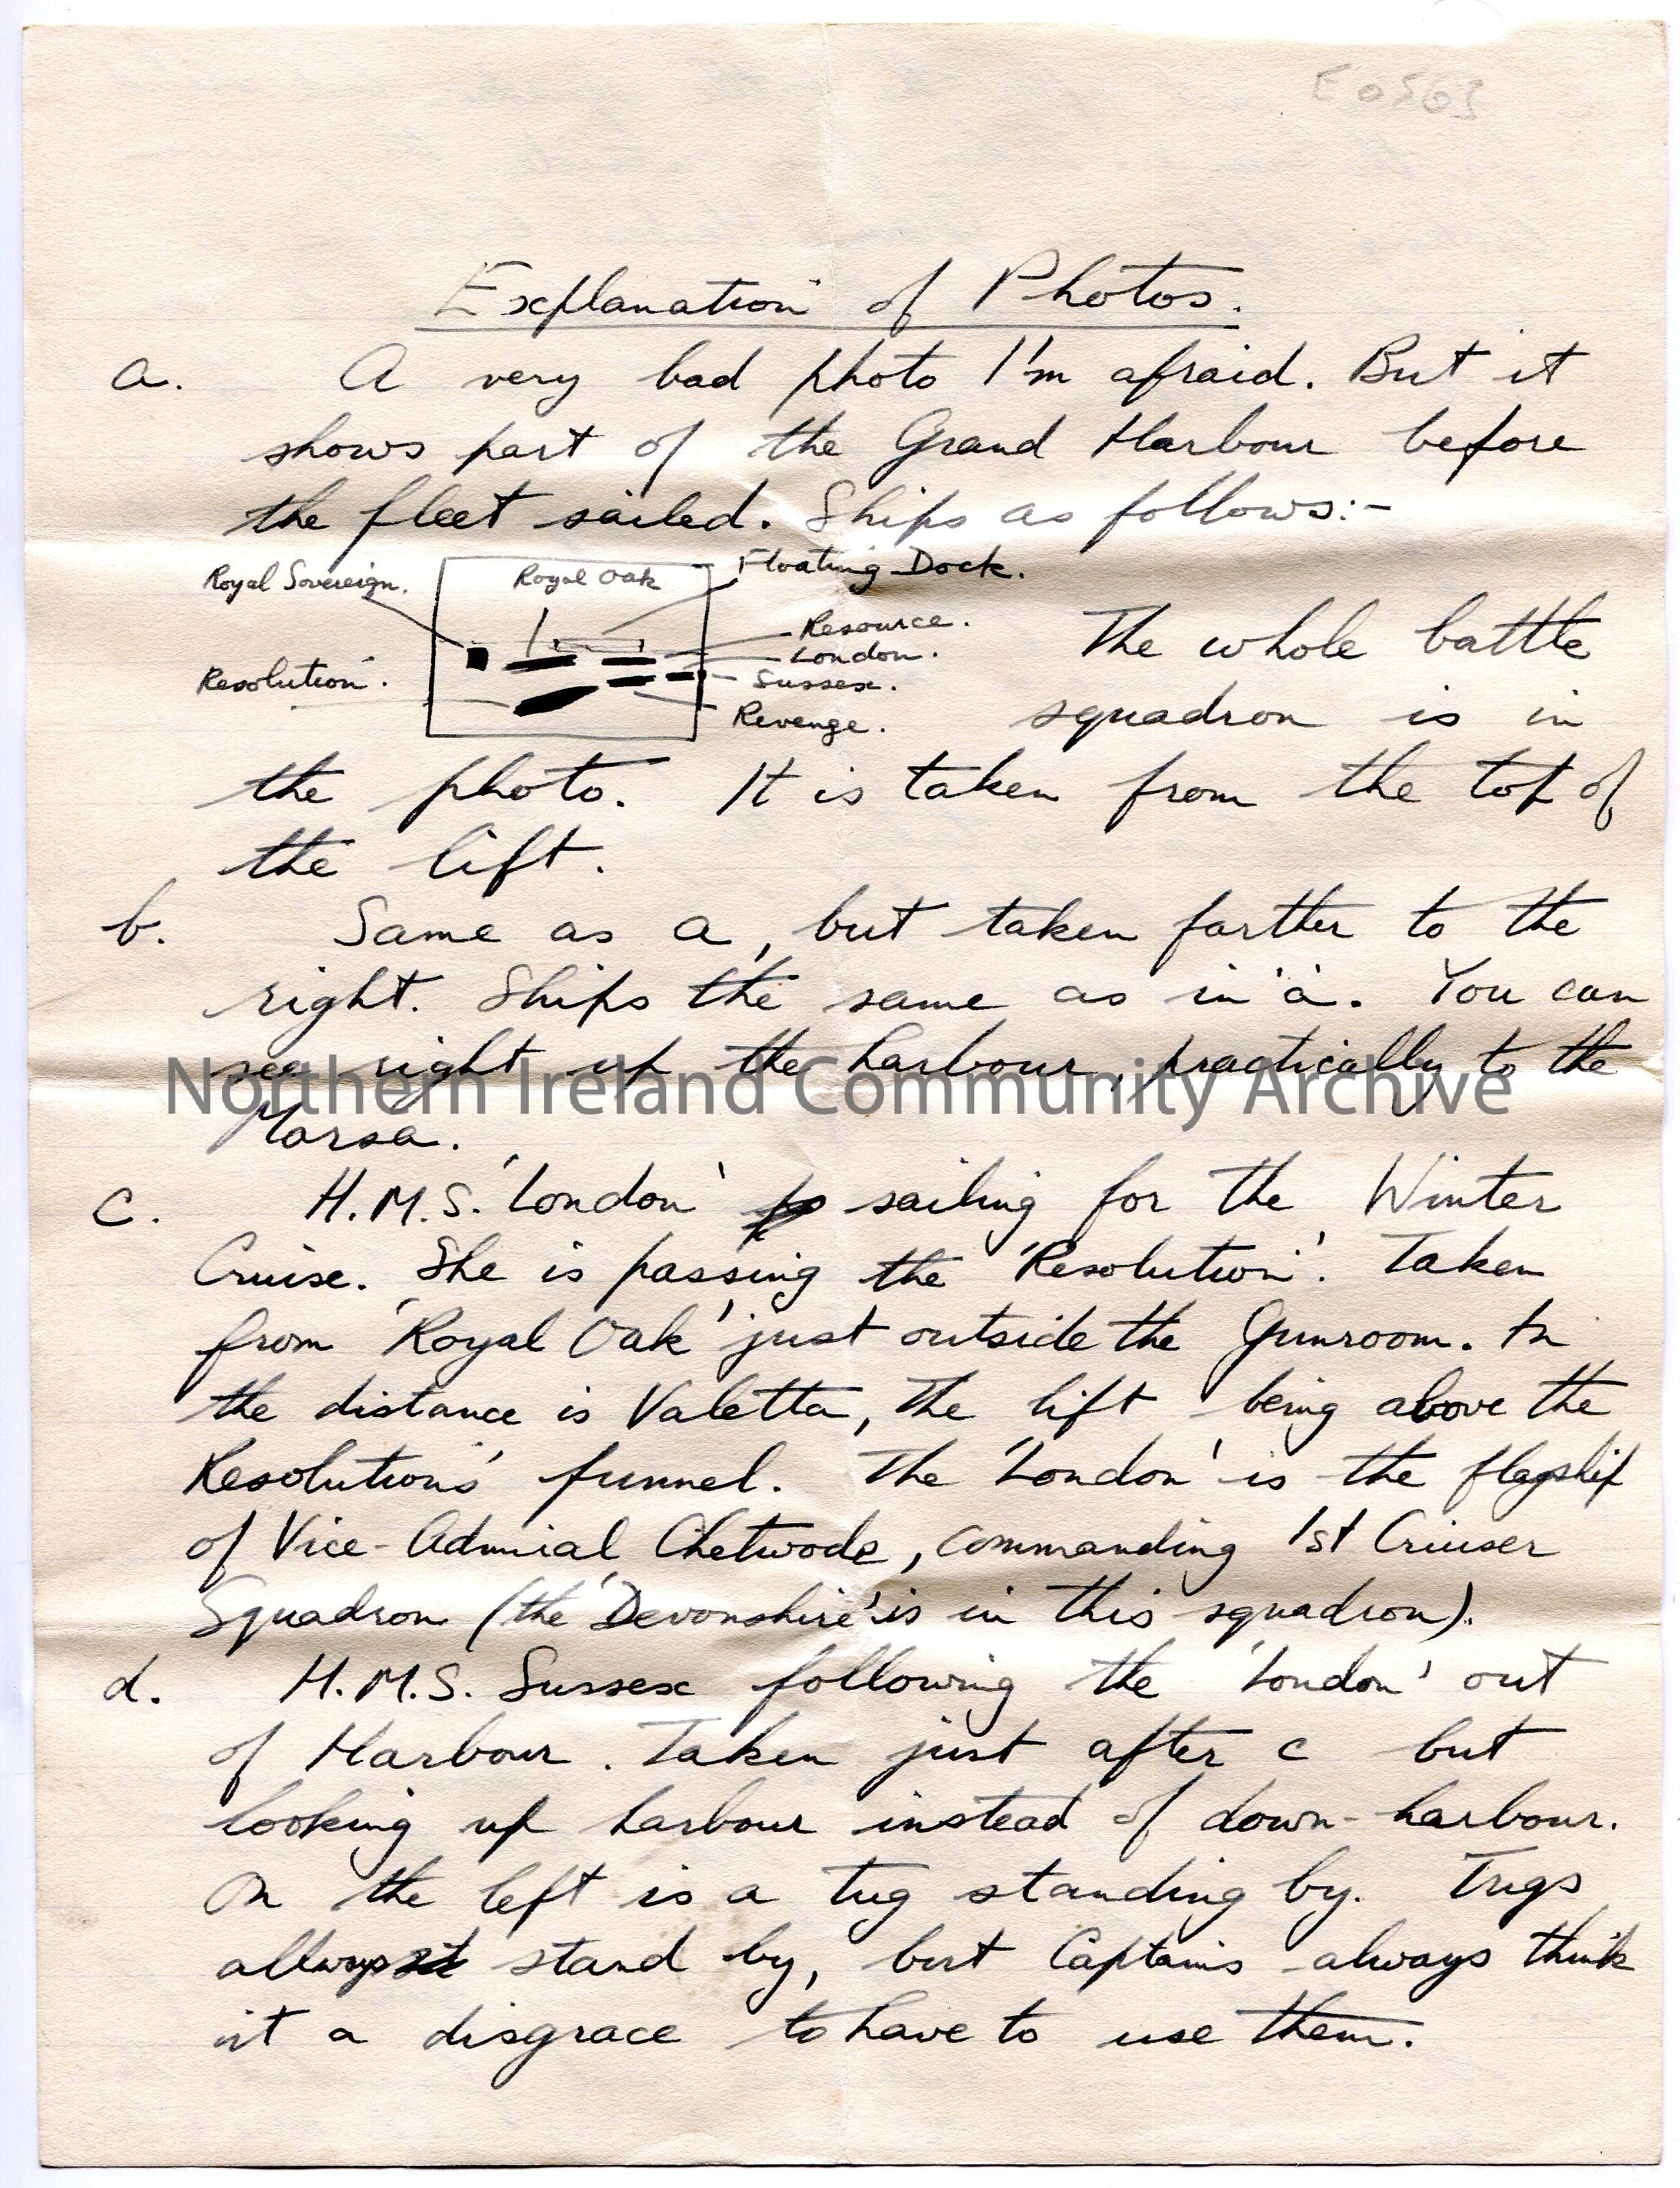 E0503
Explanation of Photos.
a. A very bad photo I'm afraid. But it
shows part of the Grand Harbour before
the fleet sailed. Ships as follows:-
Royal Sovereign.
Royal Oak
Floating Dock.
Resource.
London.
Resolution.
Sussex.
Revenge.
The whole battle
squadron is in
the photo. It is taken from the top of
the lift.
b. Same as a, but taken farther to the
right. Ships the same as in 'a'. You can
see right up the harbour, practically to the
Northern Ireland Community Archive
Marsa.
c. H.M.S. 'London' sailing for the Winter
Cruise. She is passing the 'Resolution'. Taken
from 'Royal Oak' just outside the Gunroom. In
the distance is Valetta, the lift being above the
Resolution's funnel. The 'London' is the flagship
of Vice-Admiral Chetwode, commanding 1st Cruiser
Squadron (the 'Devonshire' is in this squadron).
d. H.M.S. Sussex following the 'London' out
of Harbour. Taken just after c but
looking up harbour instead of down-harbour.
On the left is a tug standing by. Tugs
allways stand by, but Captains always think
it a disgrace to have to use them.